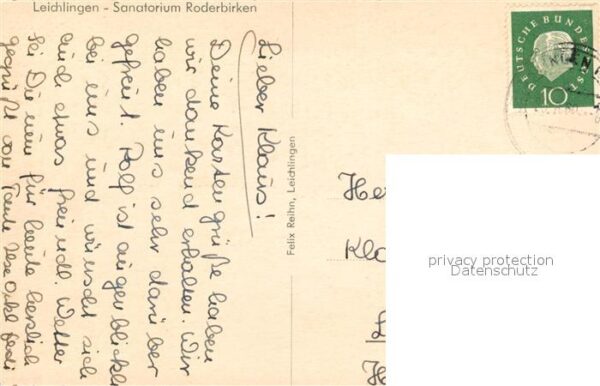 Leichlingen - Sanatorium Roderbirken
Lieber Klaus!
Deine Kartengrüße haben
wir dankend erhalten. Wir
haben uns sehr darüber
gefreut. Rolf ist augenblickl.
bei uns und wünscht sich
auch etwas freundl. Wetter
Sei Du nun für heute herzlich
gegrüßt von Tante Ilse Onkel Fredi
Felix Reihn, Leichlingen
DEUTSCHE BUNDESPOST
10
He
Kla
privacy protection
Datenschutz